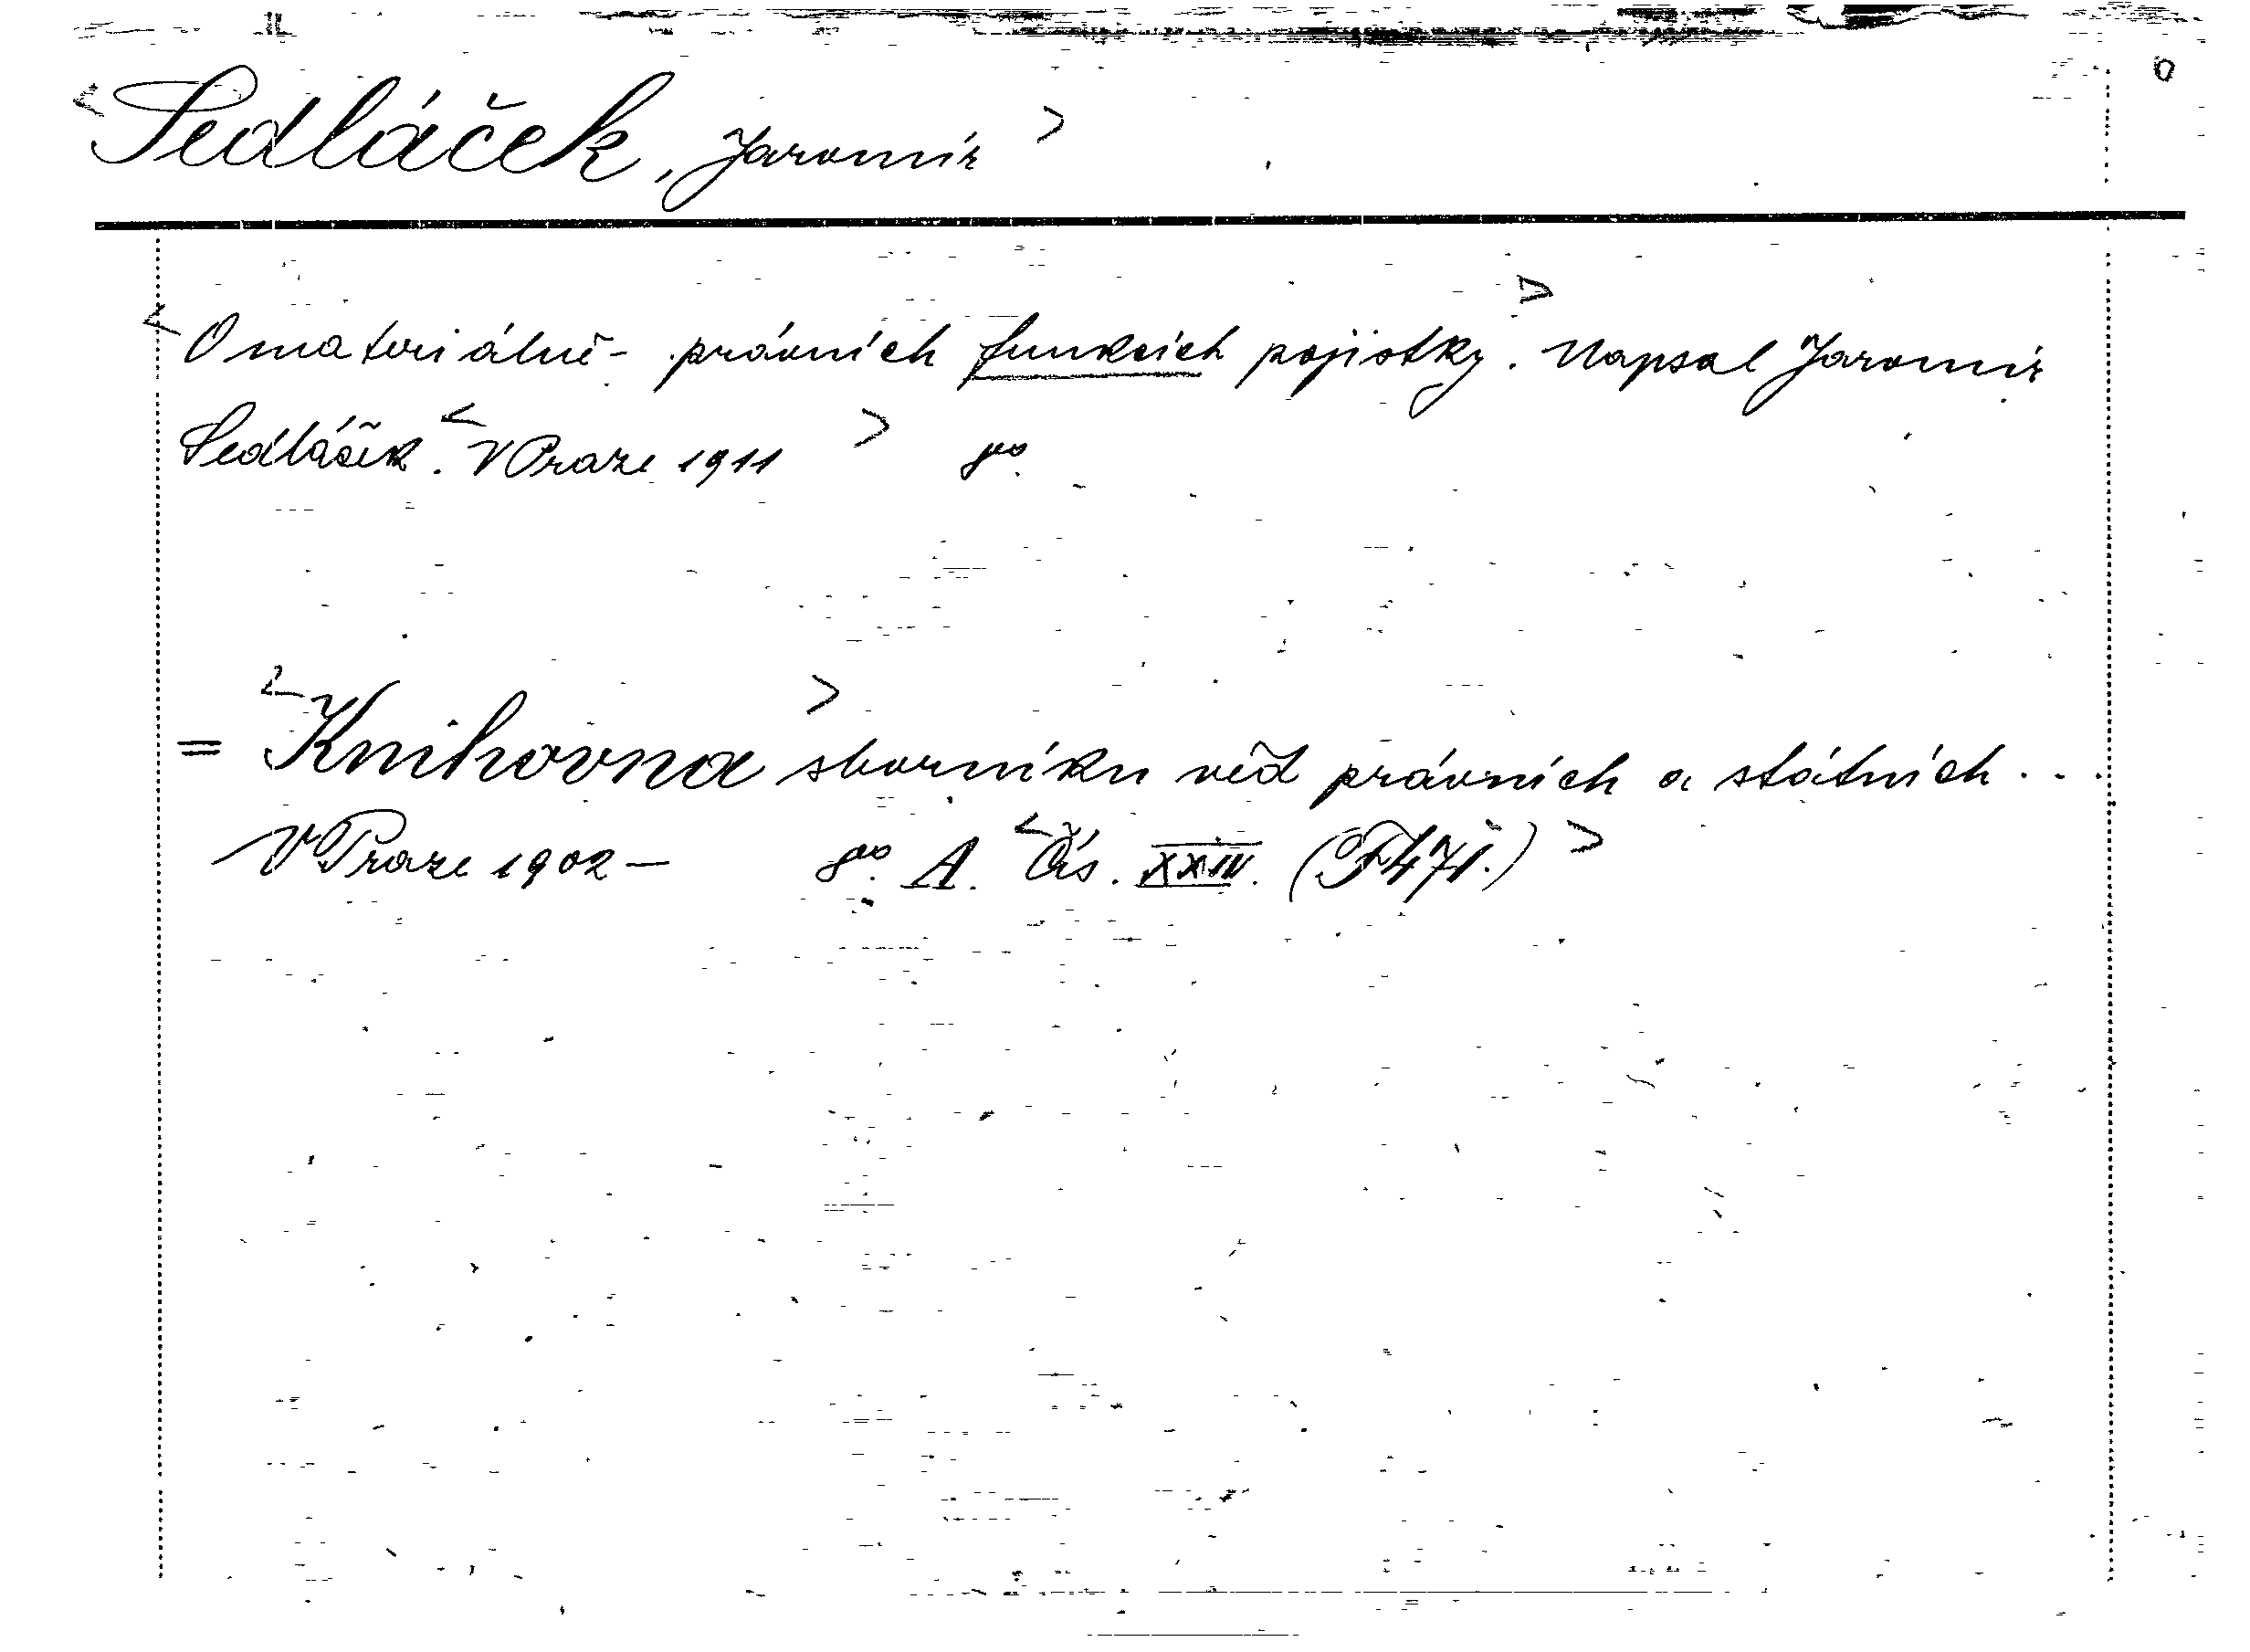 <Sedláček, Jaromír>
<O materiálně-právních funkcích pojistky.> Napsal Jaromír
Sedláček. <V Praze 1911> 8°.
= <Knihovna> sborníku věd právních a státních...
V Praze 1902– 8°. A. <Čís. XXIV. (F471.)>